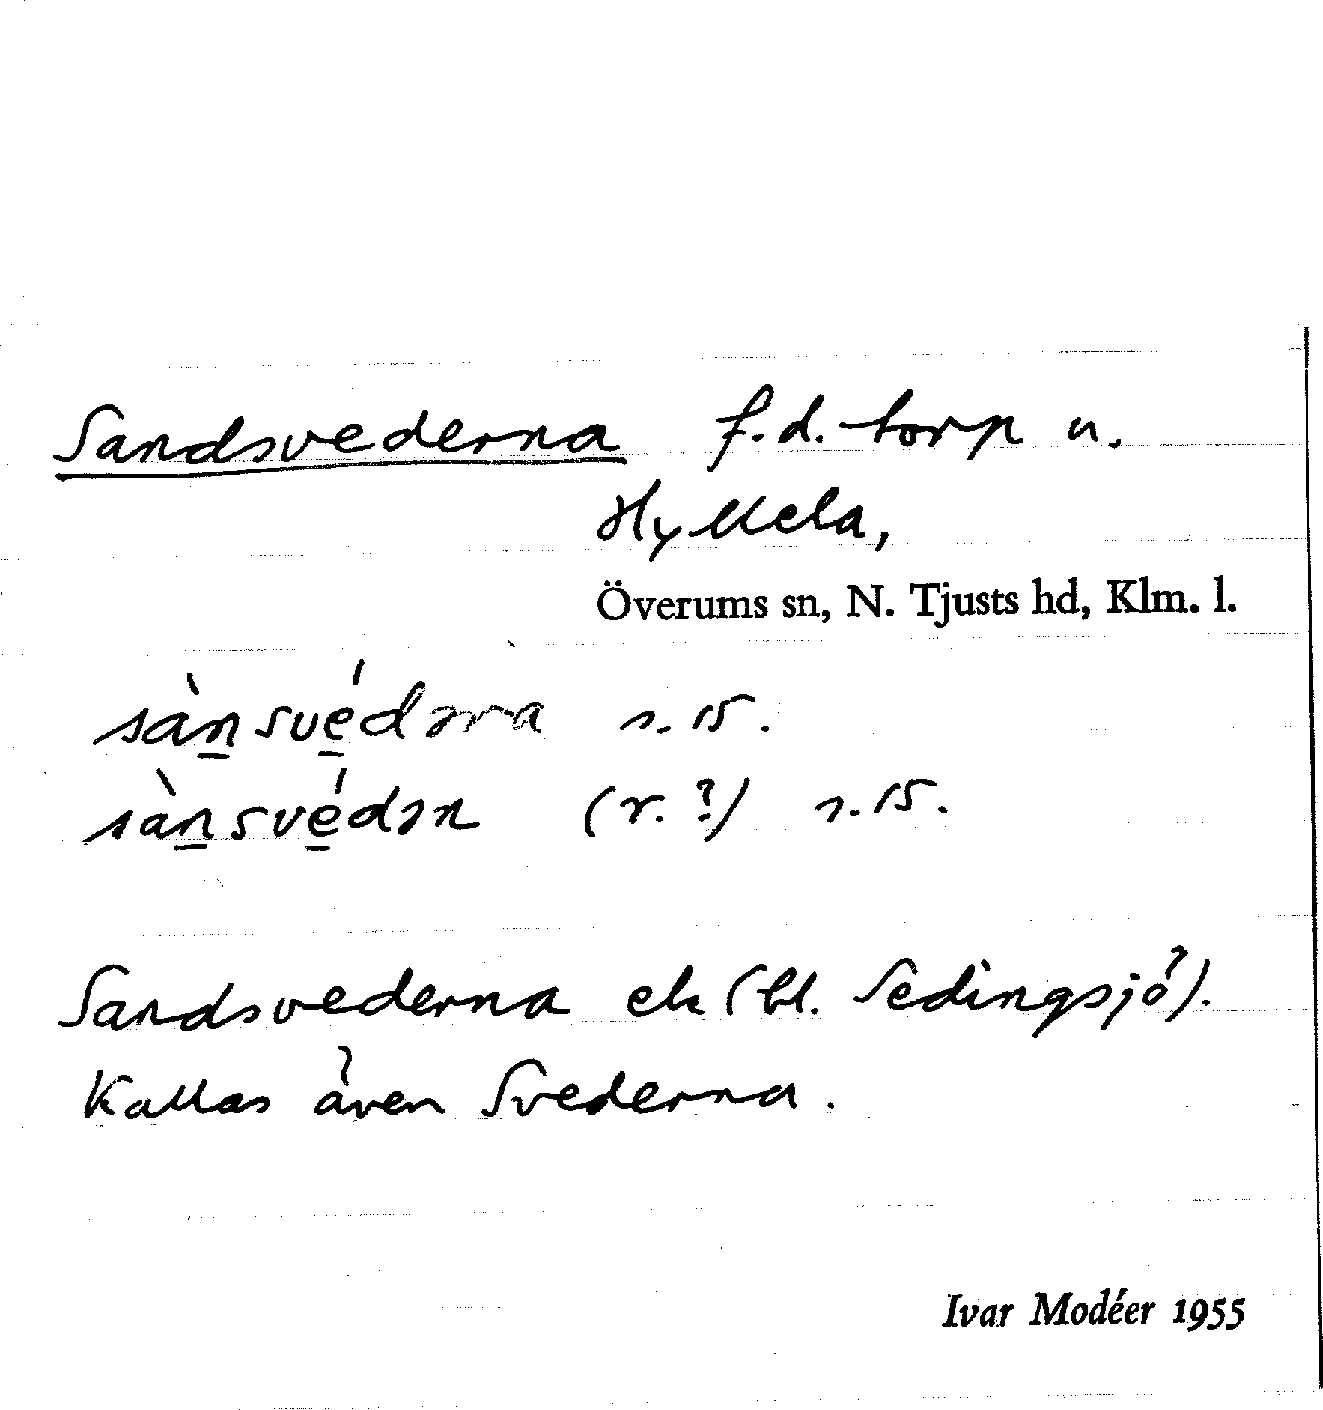 Sandsvederna f.d. torp u.
Hyllela,
Överums sn, N. Tjusts hd, Klm. l.
sàn̲své̲dəna s. 15.
sàn̲své̲dən (r.?) s. 15.
Sandsvederna ek (bl. Sedingsjö).
Kallas även Svederna.
Ivar Modéer 1955